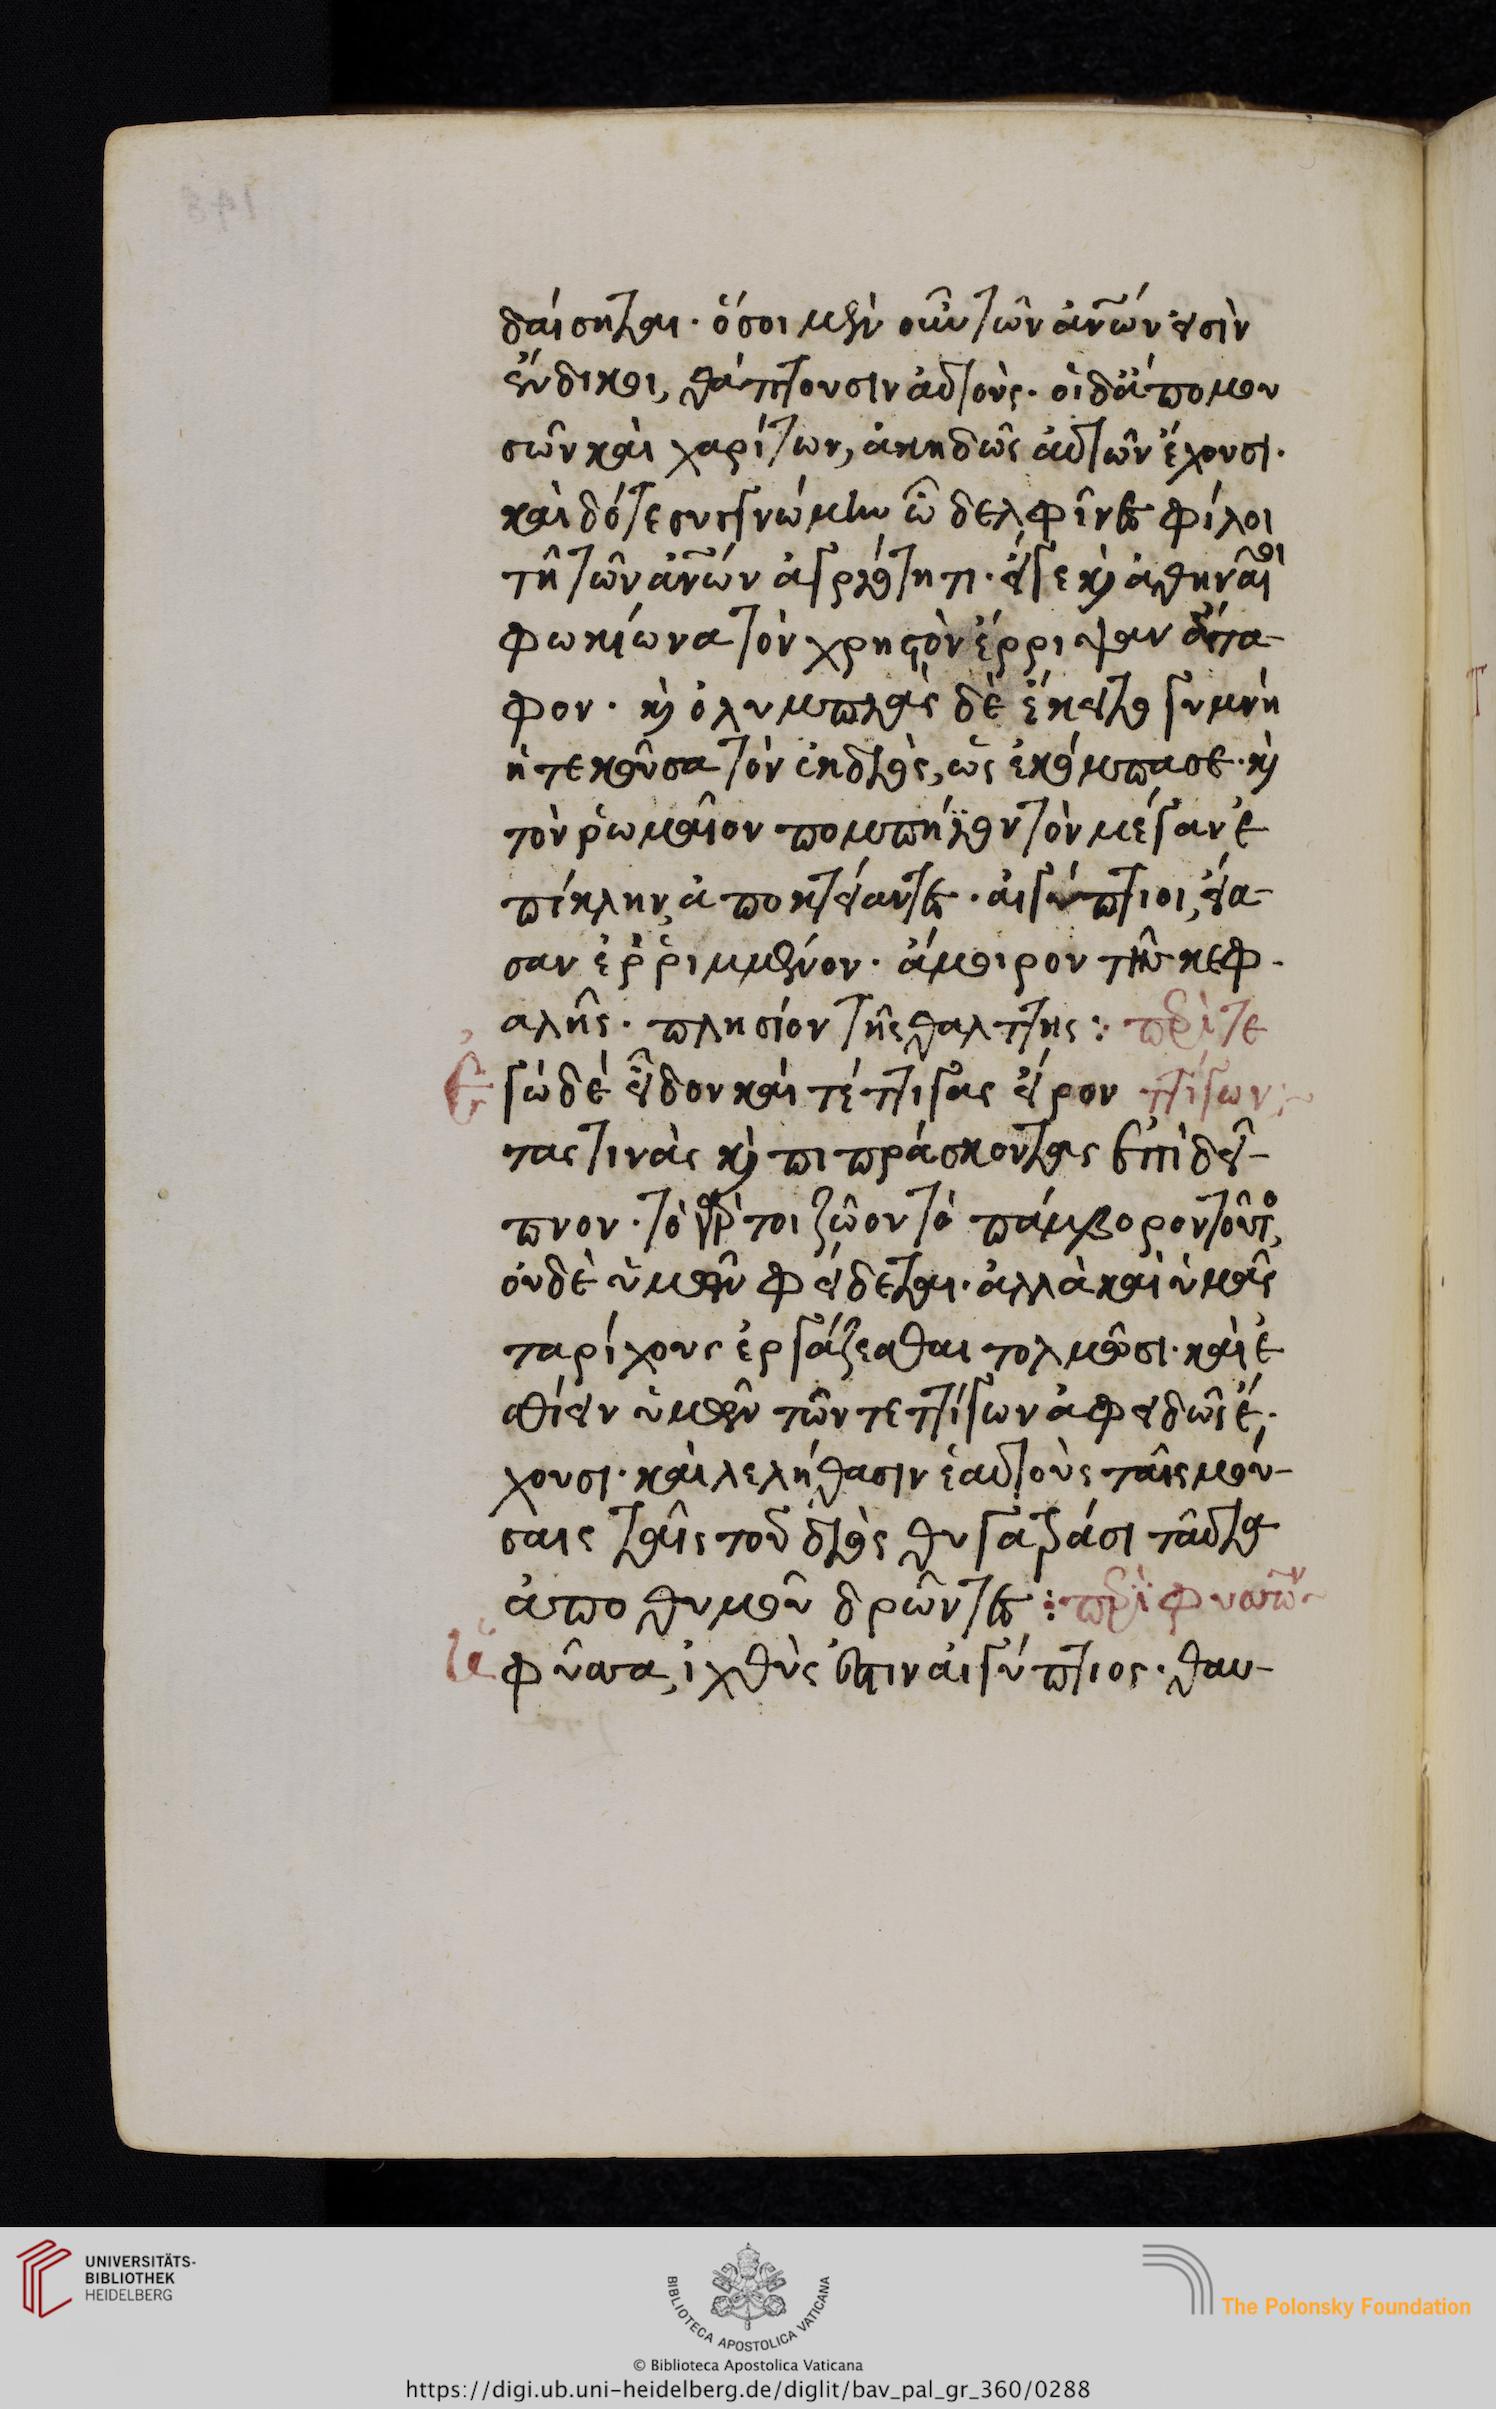 δαίσηται. ὅσοι μὲν οὖν τῶν ἀνων εἰσὶν
ἔνδικοι, θάπτουσιν αὐτούς. οἱ δὲ ἄπο μου
σῶν καὶ χαρίτων, ἀκηδῶς αὐτῶν ἔχουσι.
καὶ δότε συγγνώμην ὦ δελφῖνες φίλοι
τῇ τῶν ἀνων ἀγριότητι. εἴγε κ ἀθηναῖοι
φωκίωνα τὸν χρηστὸν ἔρριψαν ἄτα-
φον. κ ὀλυμπιὰς δὲ ἔκειτο γυμνὴ
ἡ τεκοῦσα τὸν ἐκ διὸς, ὡς ἐκόμπασε. κ
τὸν ῥωμαῖον πομπήϊον τὸν μέγαν ἐ
πίκλην, ἀποκτείναντες. αἰγύπτιοι, εἴα-
σαν ἐρῤιμμένον. ἄμοιρον τῆς κεφ-
αλῆς. πλησίον τῆς θαλττης: περὶ τε
Ἐγὼ δὲ εἶδον καὶ τέττιγας εἴρον ττίγων:
τας τινὰς κ πιπράσκοντας ἐπὶ δεῖ-
πνον. τὸ γάρ τοι ζῶον τὸ πάμβορον τοῦτο,
οὐδὲ ὑμῶν φείδεται. ἀλλὰ καὶ ὑμᾶς
ταρίχους ἐργάζεσθαι τολμῶσι. καὶ ἐ
σθίειν ὑμῶν τῶν τεττίγων ἀφειδῶς ἔ-
χουσι. καὶ λελήθασιν ἑαυτοὺς ταῖς μού-
σαις ταῖς τοῦ διὸς θυγατράσι ταῦτα
ἀπο θυμοῦ δρῶντες: περὶ φυσῶν
ιε φῦσα, ἰχθὺς ἐστιν αἰγύπτιος. θαυ-
UNIVERSITÄTS-
BIBLIOTHEK
HEIDELBERG
BIBLIOTECA APOSTOLICA VATICANA
The Polonsky Foundation
© Biblioteca Apostolica Vaticana
https://digi.ub.uni-heidelberg.de/diglit/bav_pal_gr_360/0288